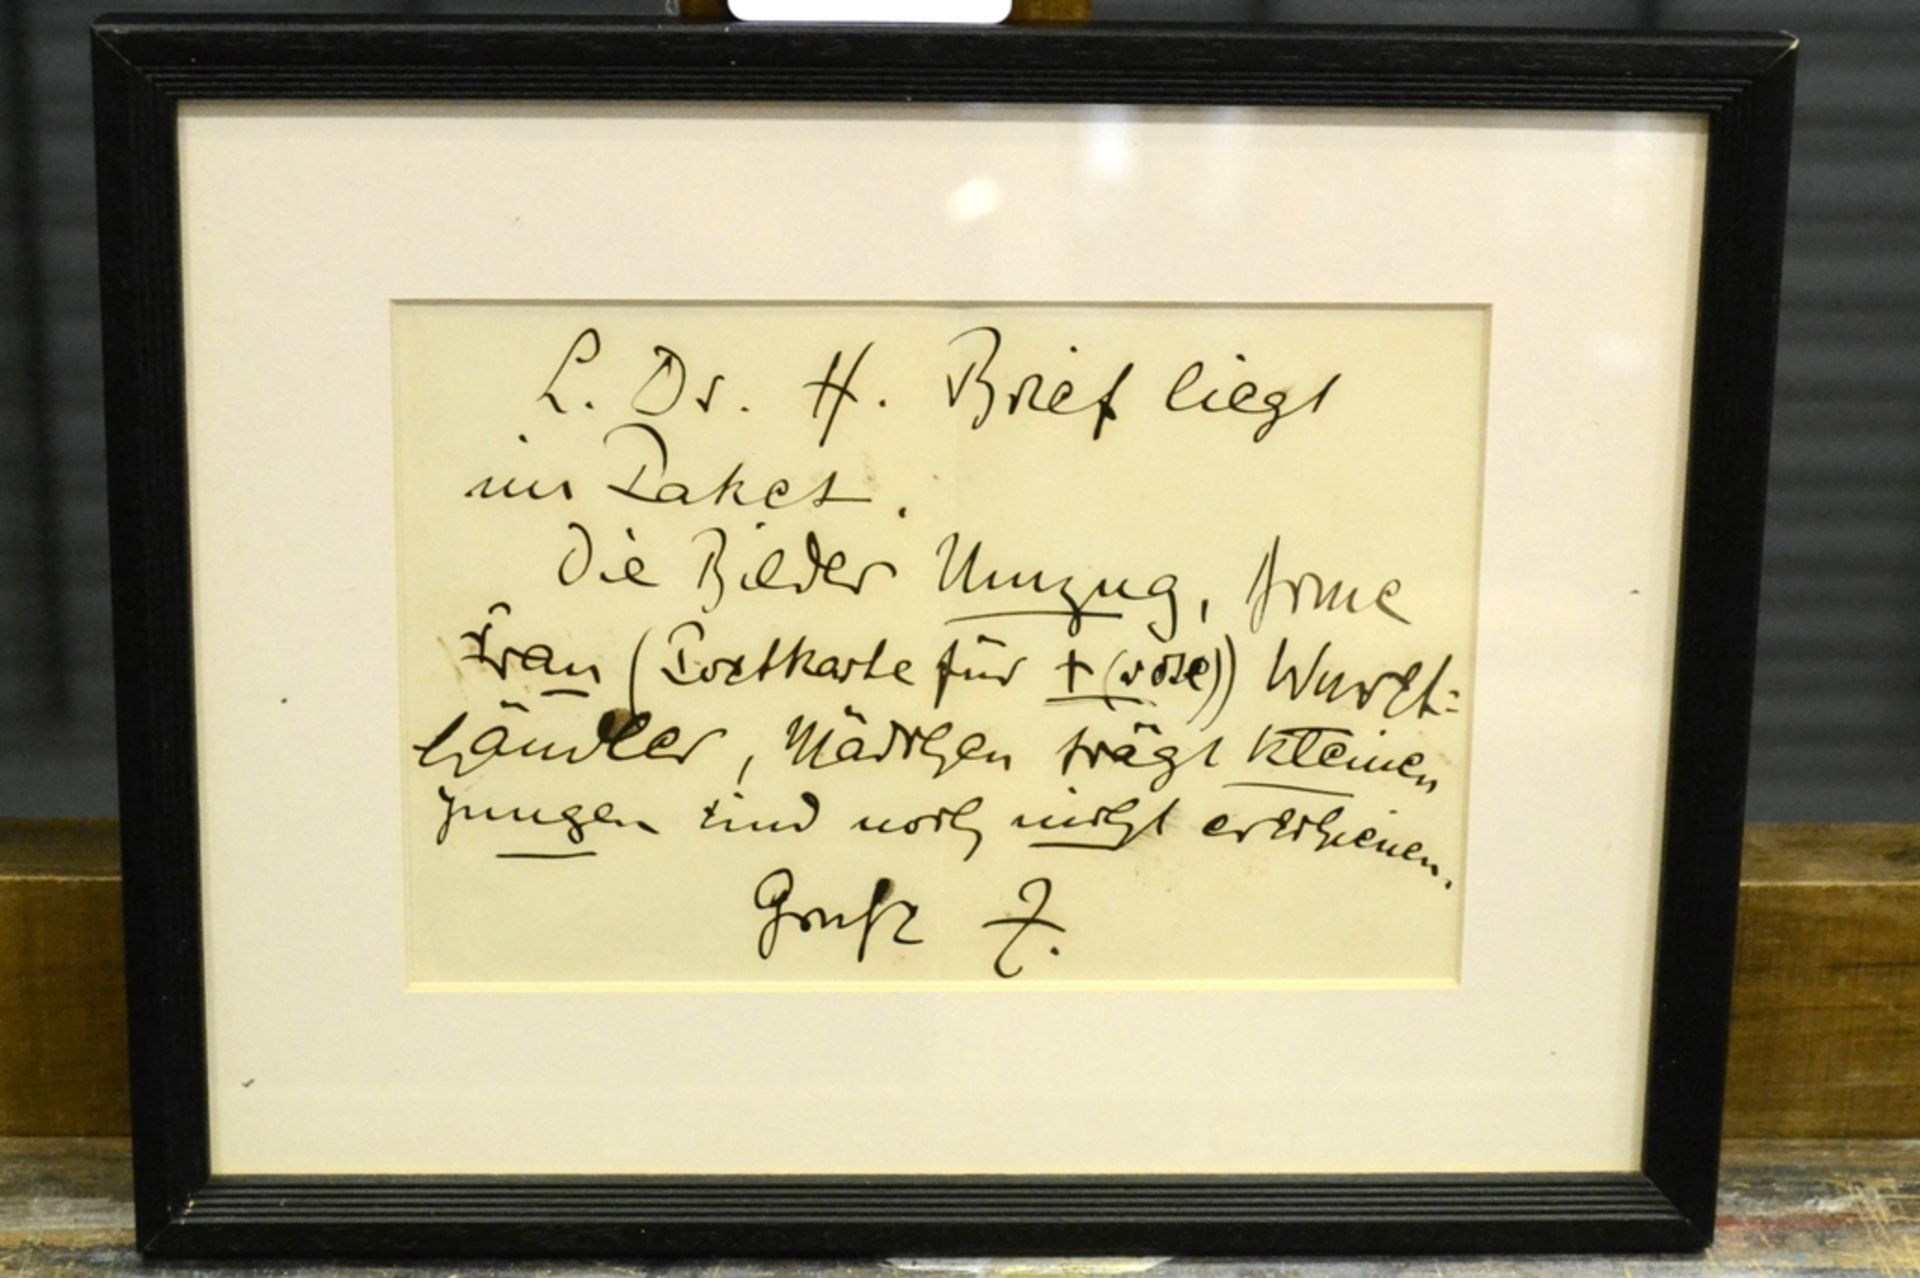 L. Dr. H. Brief liegt
im Paket.
Die Bilder Umzug, Arme
Frau (Postkarte für + (röse)) Wurst=
händler, Mädchen trägt kleinen
Jungen sind noch nicht erschienen.
Gruß Z.